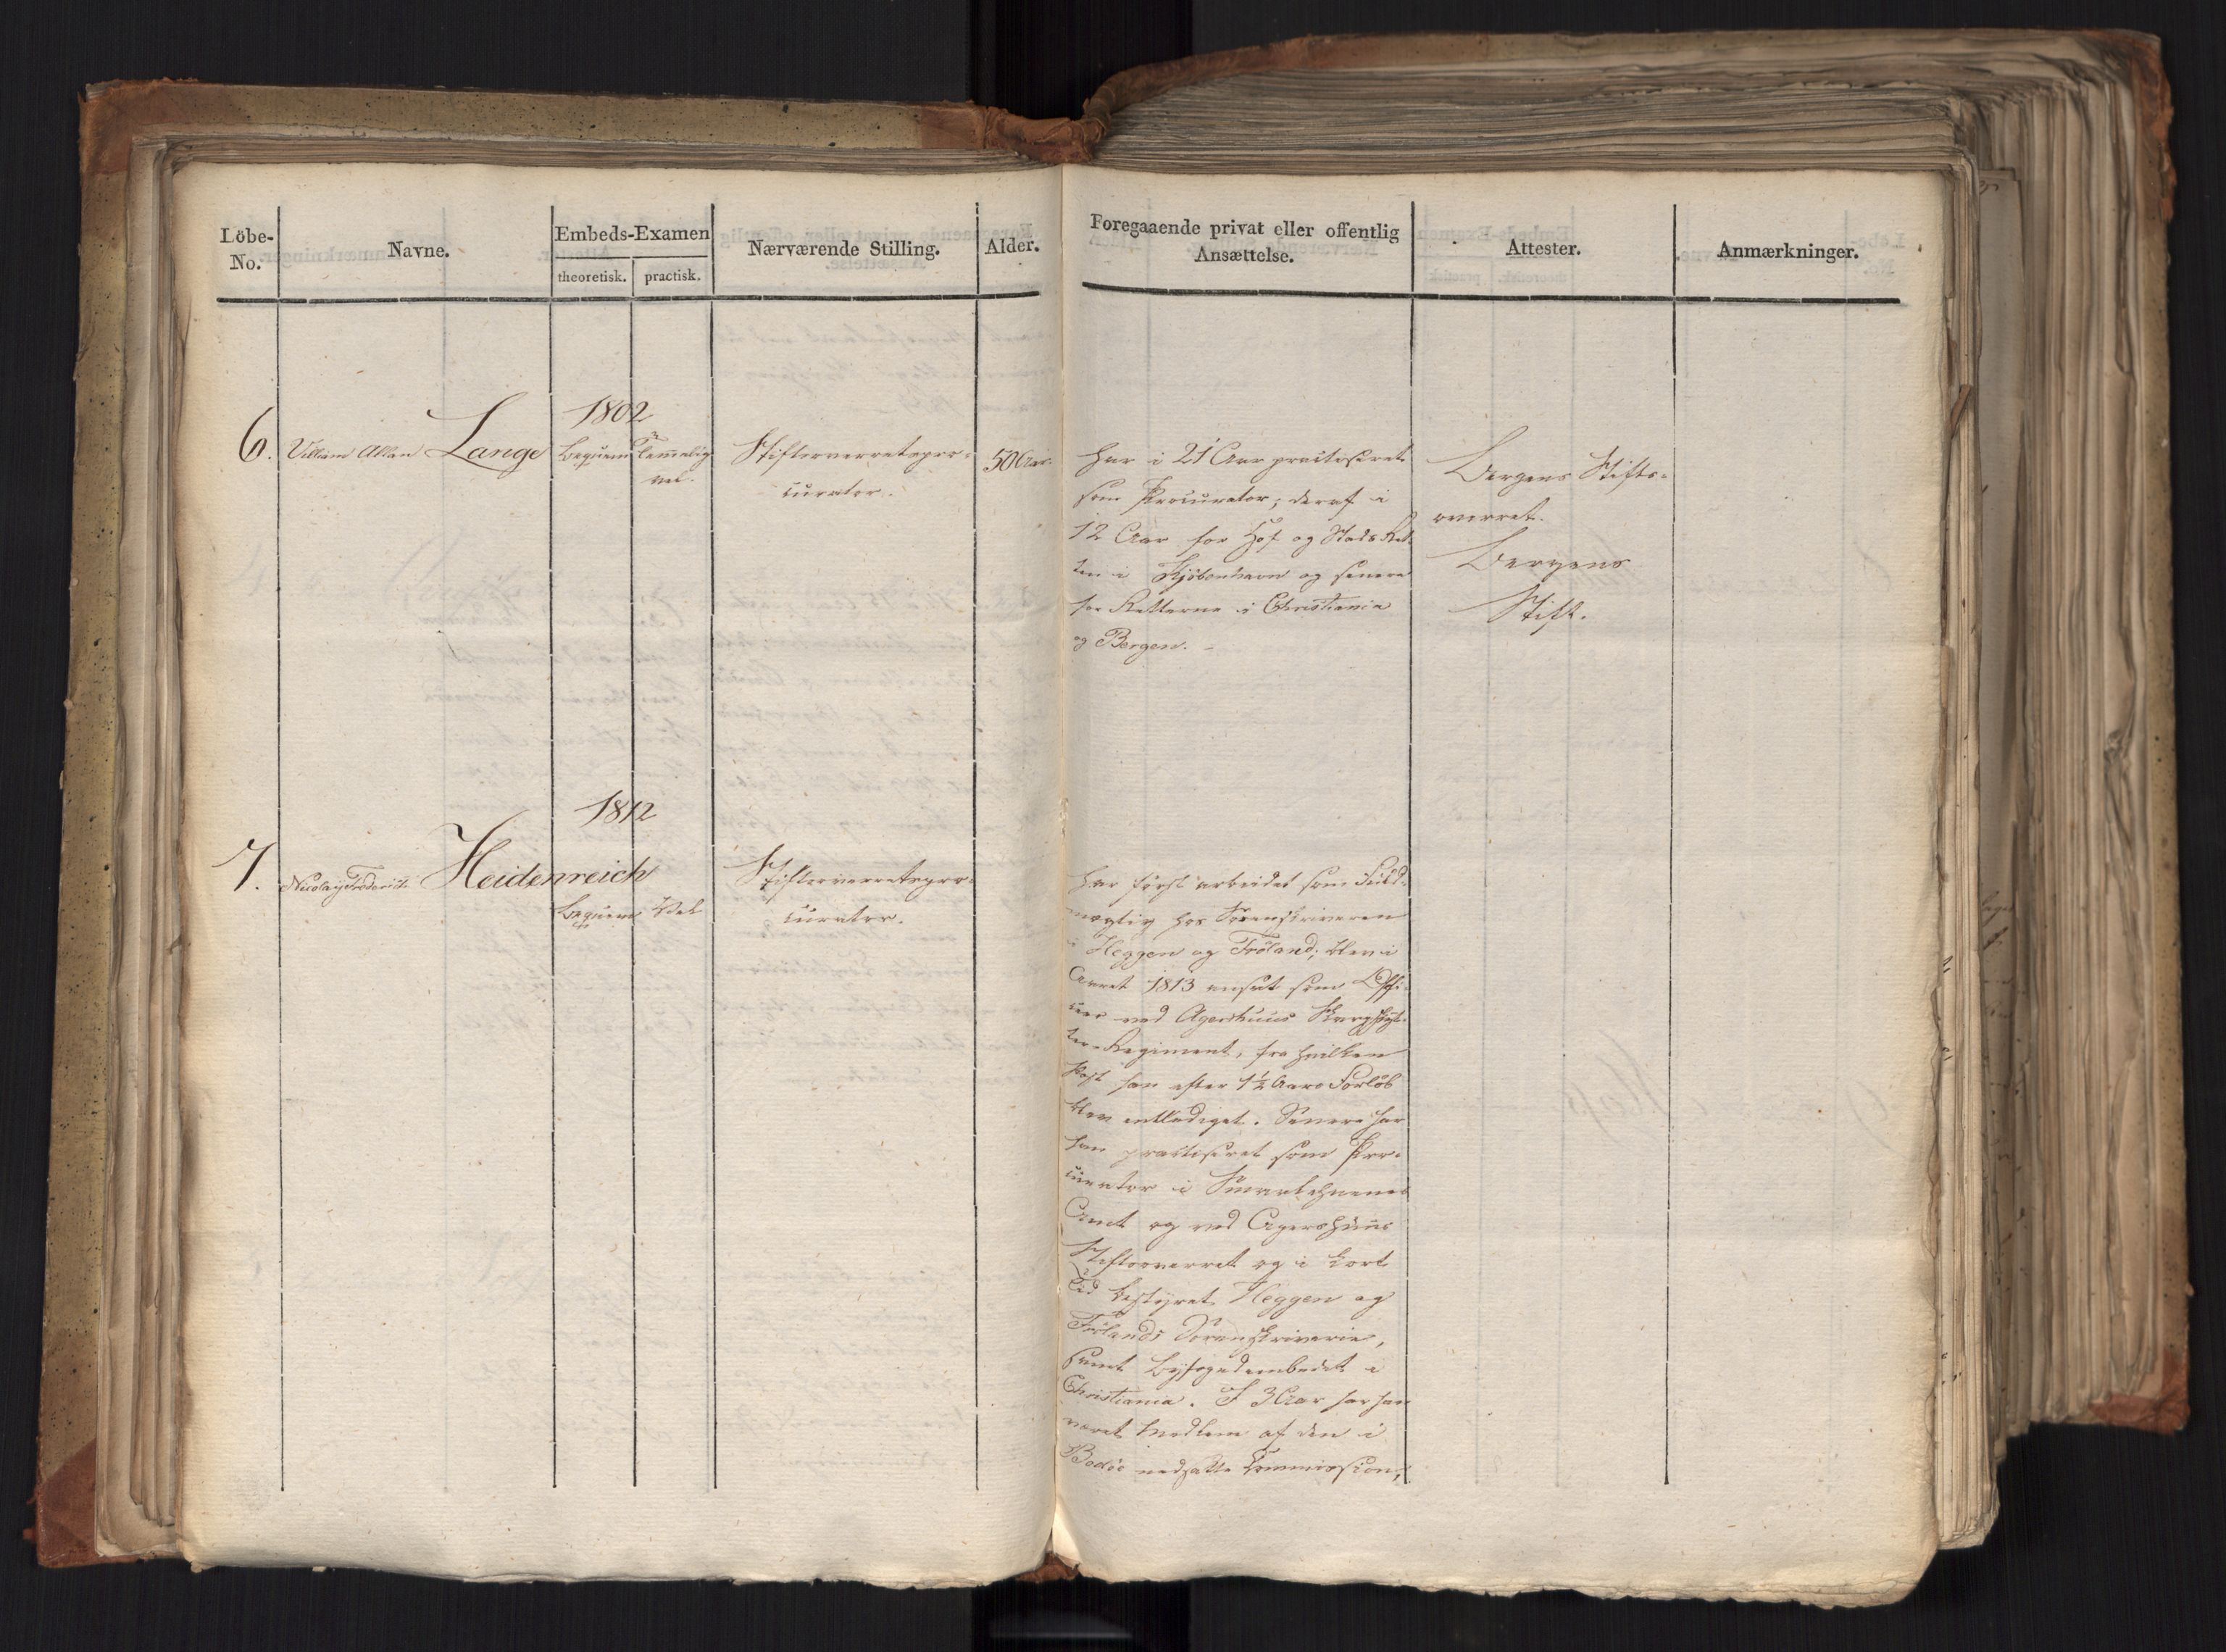 Löbe-No.
Navne.
Embeds-Examen
theoretisk.
practisk.
Nærværende Stilling.
Alder.
Foregaaende privat eller offentlig
Ansættelse.
Attester.
Anmærkninger.
1802
6. Villiam Allan Lange
beqvem
Temmelig
vel.
Stiftsoverretspro-
curator.
50 Aar.
Har i 21 Aar practiseret
som Procurator; deraf i
12 Aar for Hof og Stads Ret-
ten i Kjöbenhavn og senere
for Retterne i Christiania
og Bergen. -
Bergens Stifts-
overret.
Bergens
Stift.
1812
7. Nicolay Frederich Heidenreich
beqvem
Vel
Stiftsoverretspro-
curator.
Har først arbeidet som Fuld-
mægtig hos Sorenskriveren
i Heggen og Fröland; blev i
Aaret 1813 ansat som Offi-
cier ved Agershuus Skarpskyt-
ter-Regiment, fra hvilken
Post han efter 1½ Aars Forlöb
blev entlediget. Senere har
han practiseret som Pro-
curator i Smaalehnenes
Amt og ved Agershuus
Stiftsoverret og i kort
Tid bestyret Heggen og
Frölands Sorenskriverie,
samt Byfogedembedet i
Christiania. I 3 Aar har han
været Medlem af den i
Bodöe nedsatte Commission,